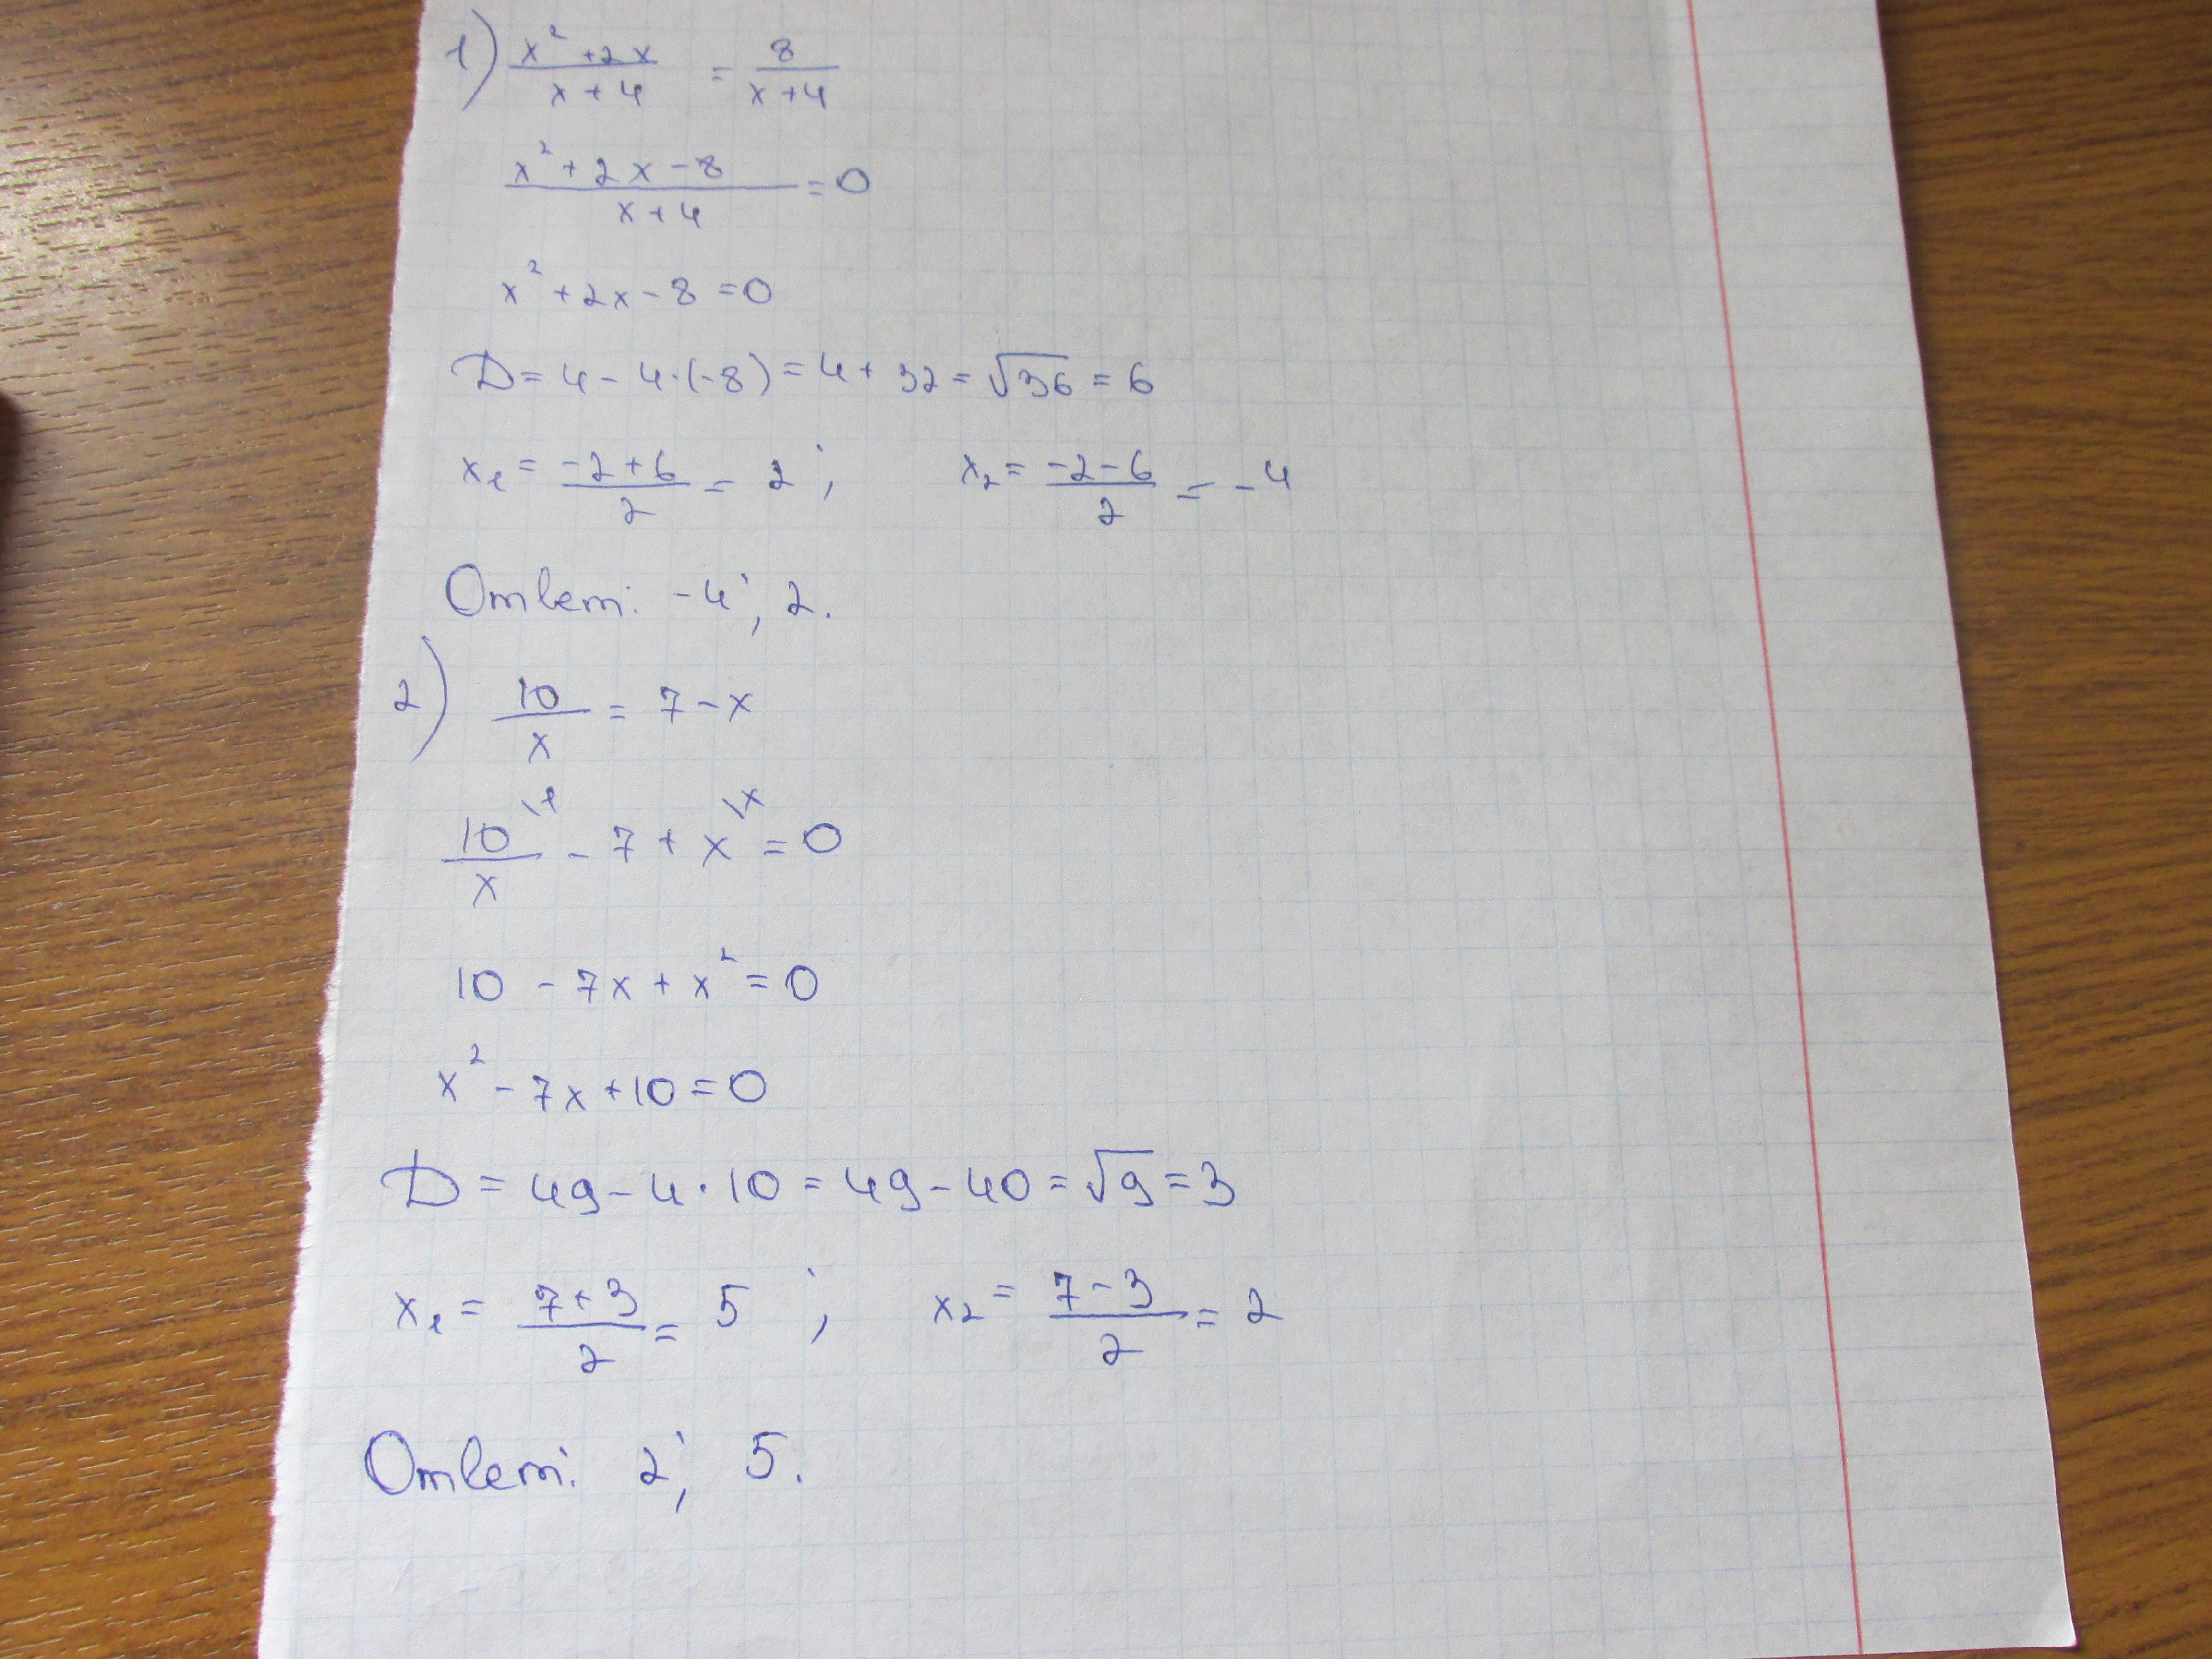 1) (x² + 2x)/(x + 4) = 8/(x + 4)
(x² + 2x - 8)/(x + 4) = 0
x² + 2x - 8 = 0
D = 4 - 4·(-8) = 4 + 32 = √36 = 6
x₁ = (-2 + 6)/2 = 2; x₂ = (-2 - 6)/2 = -4
Ответ: -4; 2.
2) 10/x = 7 - x
10\1/x - 7 + x\x = 0
10 - 7x + x² = 0
x² - 7x + 10 = 0
D = 49 - 4·10 = 49 - 40 = √9 = 3
x₁ = (7 + 3)/2 = 5; x₂ = (7 - 3)/2 = 2
Ответ: 2; 5.